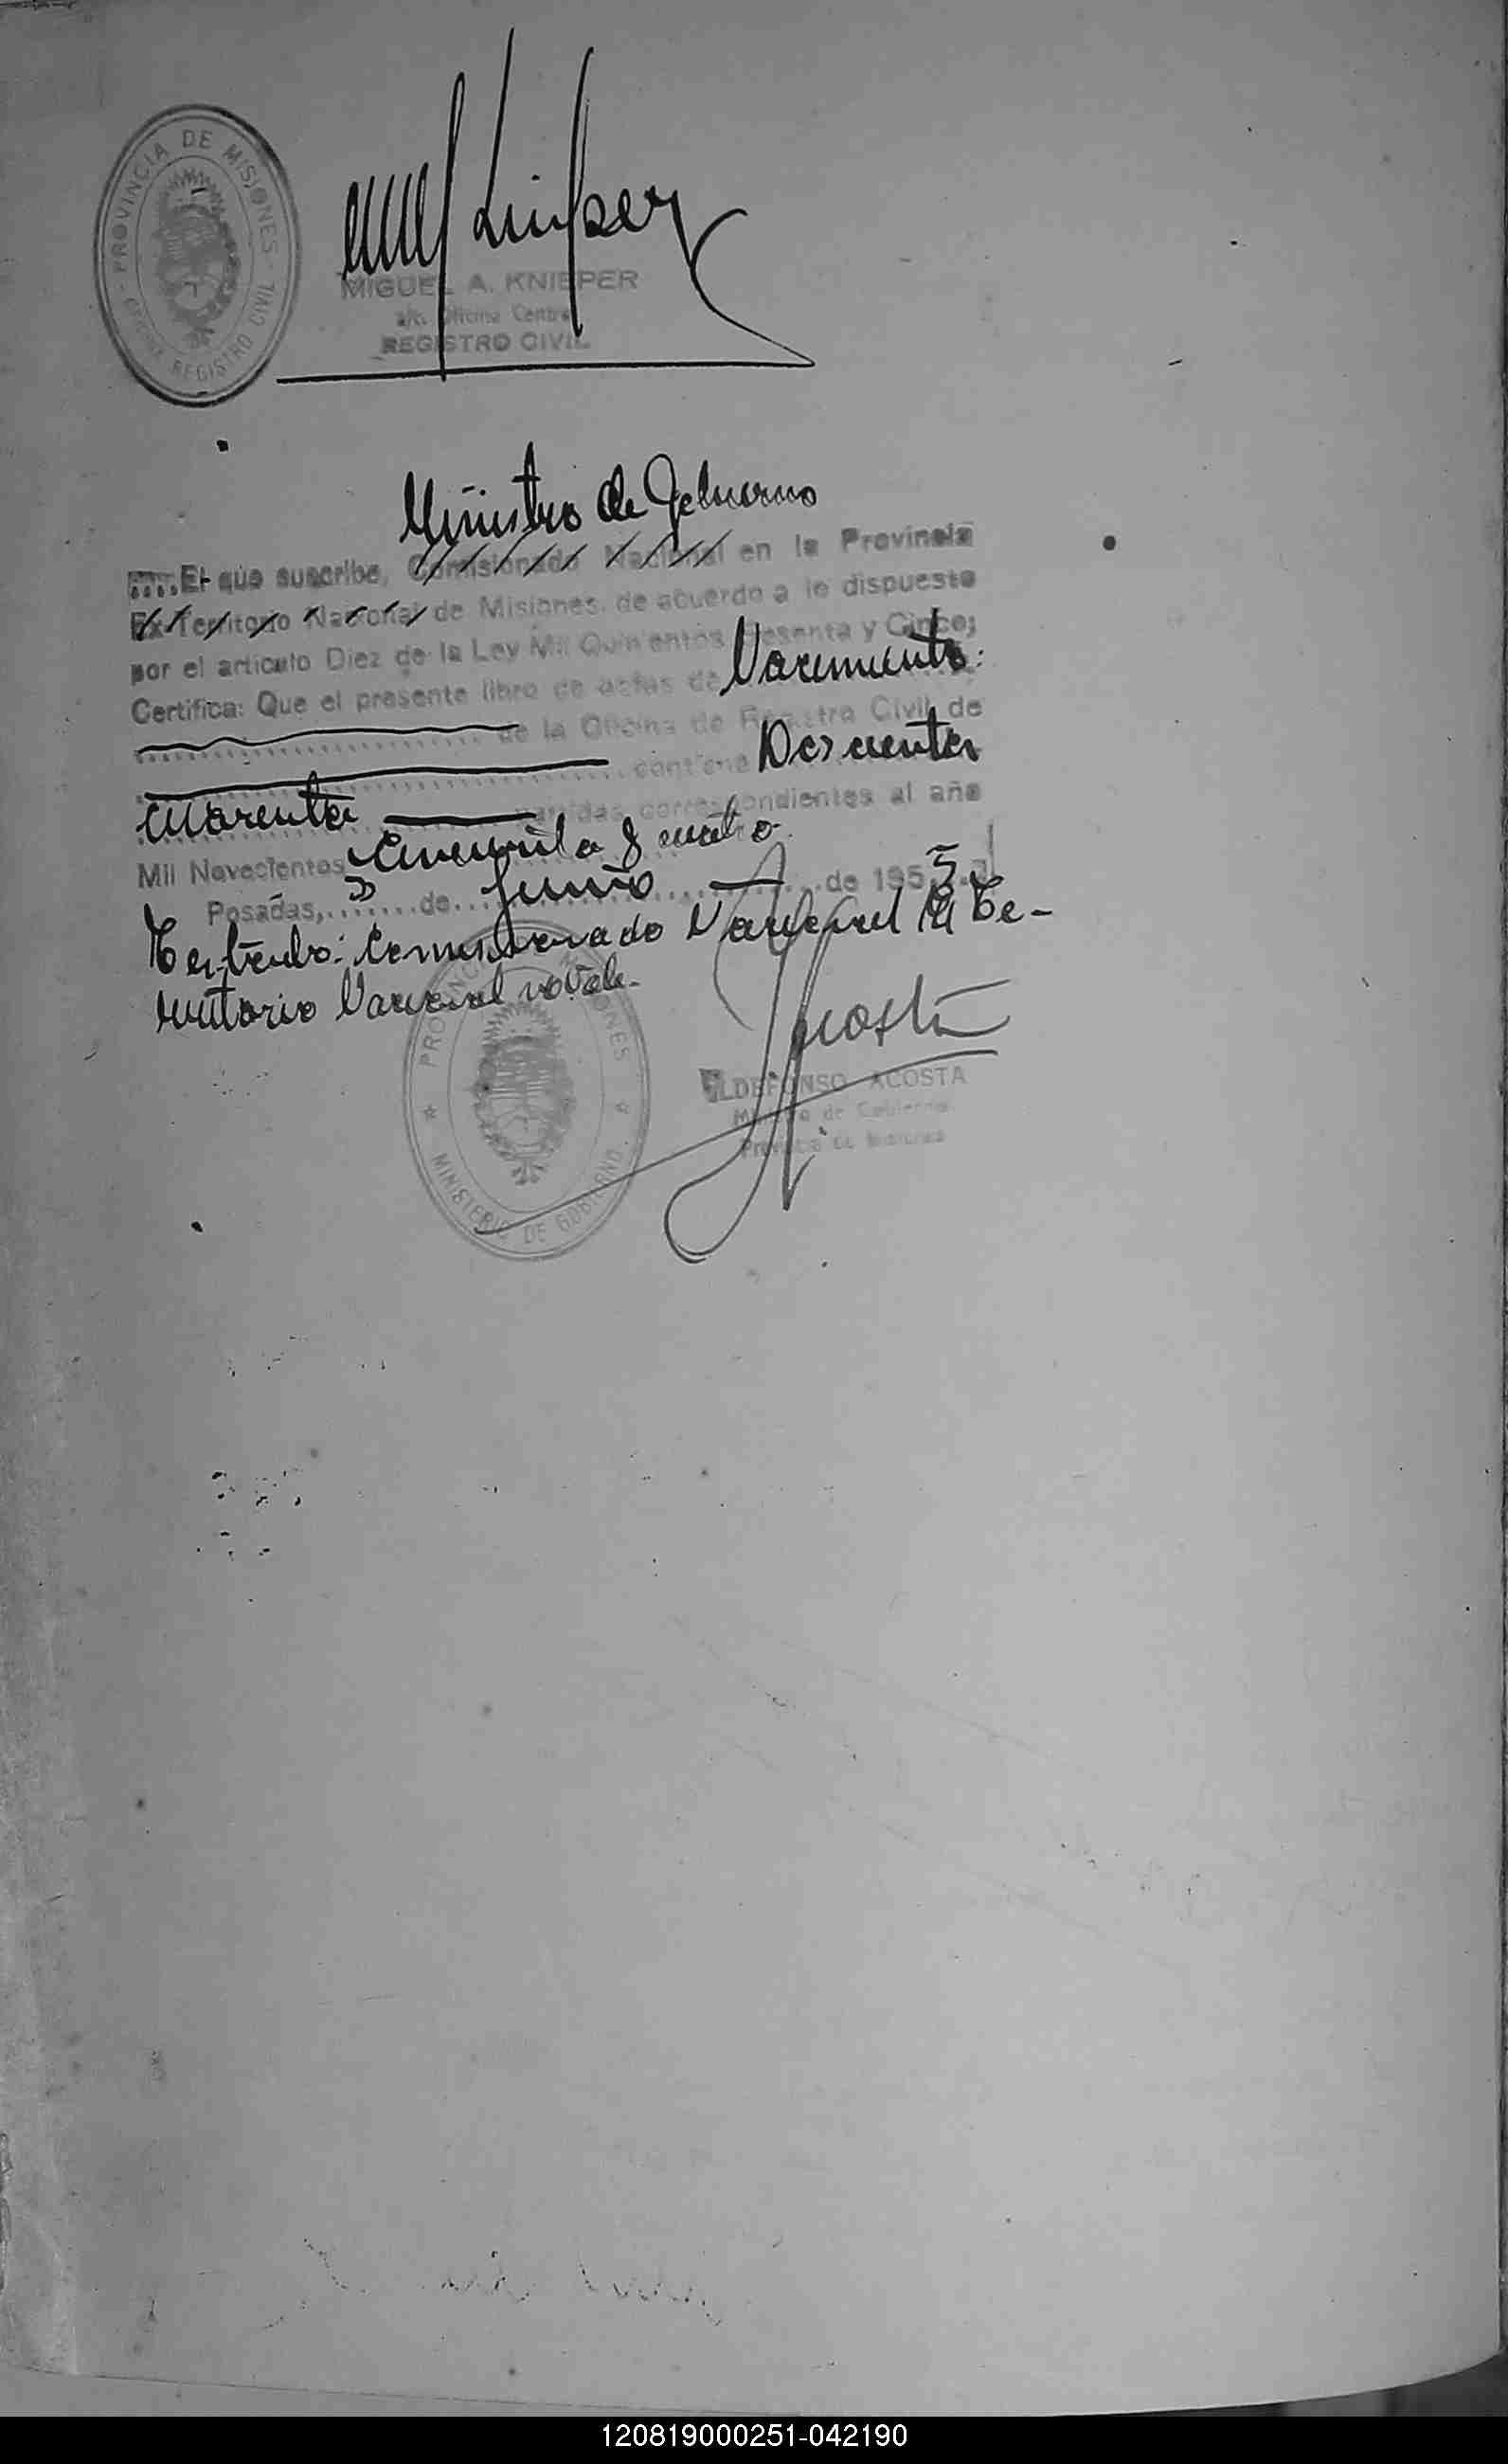 PROVINCIA DE MISIONES
REGISTRO CIVIL
MIGUEL A. KNIEPER
a/c. Oficina Central
REGISTRO CIVIL
Ministro de Gobierno
El que suscribe, Comisionado Nacional en la Provincia
Ex-Territorio Nacional de Misiones, de acuerdo a lo dispuesto
por el artículo Diez de la Ley Mil Quinientos Sesenta y Cinco;
Certifica: Que el presente libro de actas de Nacimiento
de la Oficina de Registro Civil de
contiene Doscientas
cuarenta partidas correspondientes al año
Mil Novecientos Cincuenta y cuatro
Posadas, de Junio de 1955
Testado: Comisionado Nacional Ex Te-
rritorio Nacional no vale-
PROVINCIA DE MISIONES
MINISTERIO DE GOBIERNO
Acosta
ILDEFONSO ACOSTA
Ministro de Gobierno
Provincia de Misiones
120819000251-042190